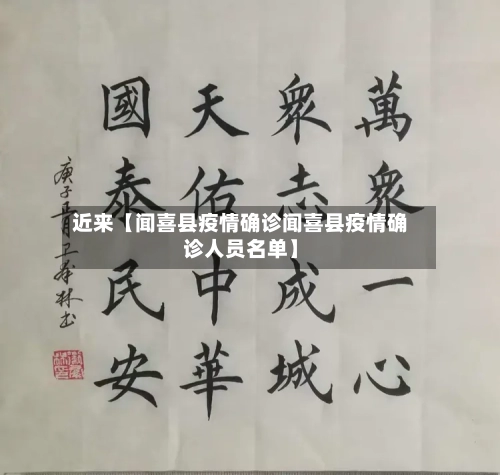 萬衆一心
衆志成城
天佑中華
國泰民安
庚子年正月
近来【闻喜县疫情确诊闻喜县疫情确
诊人员名单】